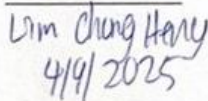 Lim Chong Heny
4/9/2025